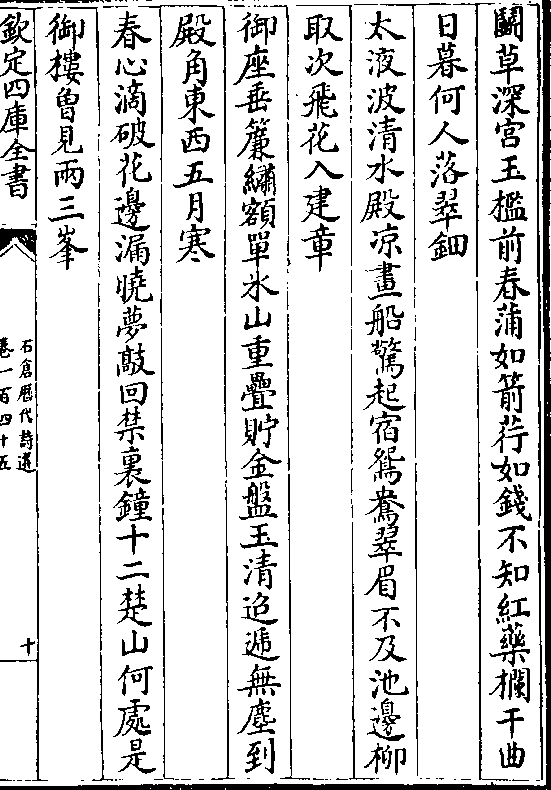 鬭草深宫玉檻前春蒲如箭荇如錢不知紅藥欄干曲
日暮何人落翠鈿
太液波清水殿凉畫船驚起宿鴛鴦翠眉不及池邊柳
取次飛花入建章
御座垂簾繡額單氷山重疊貯金盤玉清迢遞無塵到
殿角東西五月寒
春心滴破花邊漏曉夢敲回禁裏鐘十二楚山何處是
御樓曽見兩三峯
欽定四庫全書
石倉歴代詩選
卷一百四十五
十